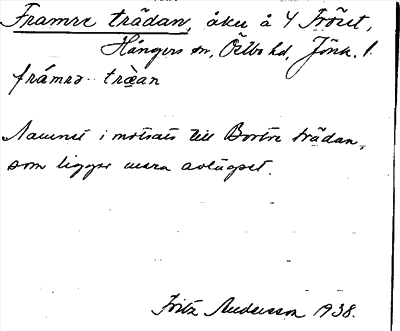 Framre trädan, åker å 4 Fröset,
Hångers sn, Östbo hd, Jönk. l.
frámrə trä̀an
Namnet i motsats till Bortre trädan,
som ligger mera avlägset.
Fritz Andersson 1938.